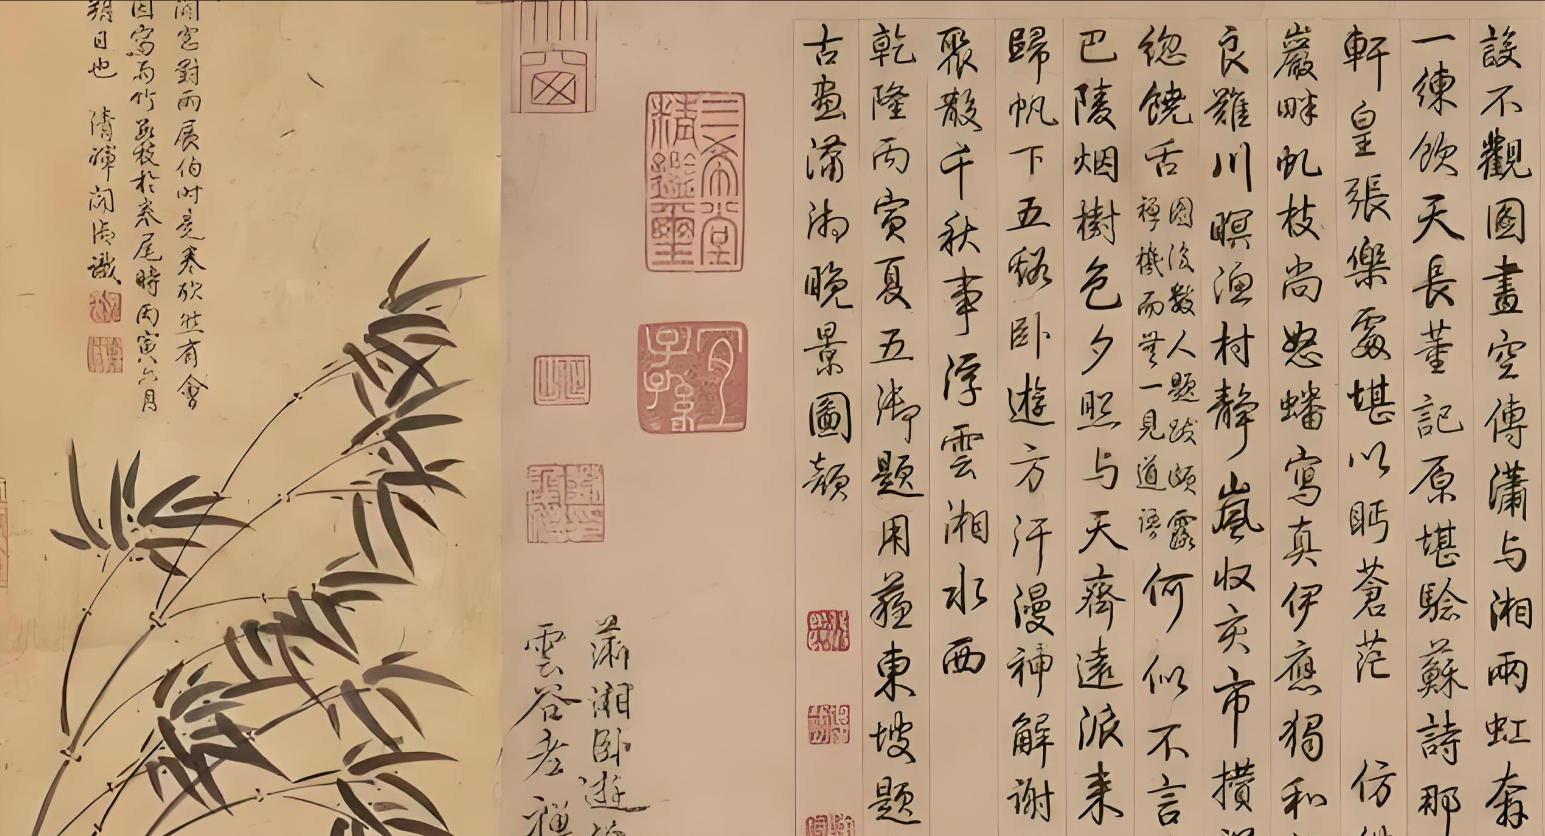 設不觀圖畫空傳瀟与湘兩虹奔
一練飲天長董記原堪驗蘇詩那
軒皇張樂處堪以眄蒼茫 仿
巖畔虬枝尚怒蟠寫真伊應獨和
良難川暝漁村靜嵐收亥市攢
總饒舌 圖後數人題跋頗露
禪機而無一見道語 何似不言
巴陵烟樹色夕照与天齊遠派來
歸帆下五谿卧遊方汗漫神解謝
聚散千秋事浮雲湘水西
乾隆丙寅夏五御題用蘇東坡題
古畫瀟湘晚景圖韻
三希堂精鑑璽
宜子孫
瀟湘卧遊
雲谷老禪
閒窓對雨展伯時是卷欣然有會
因寫雨竹數枝於卷尾時丙寅六月
朔日也 清暉閣御識